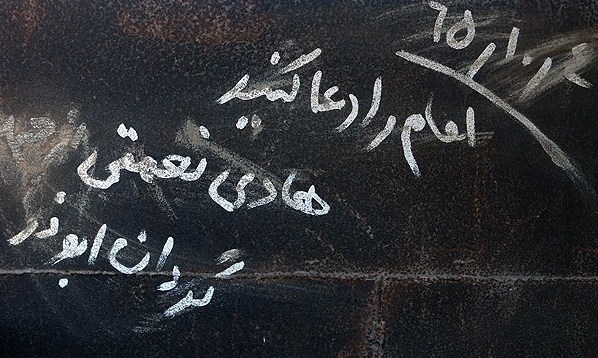 ٦٥
امام را دعا کنید
هادی نعمتی
گردان ابوذر